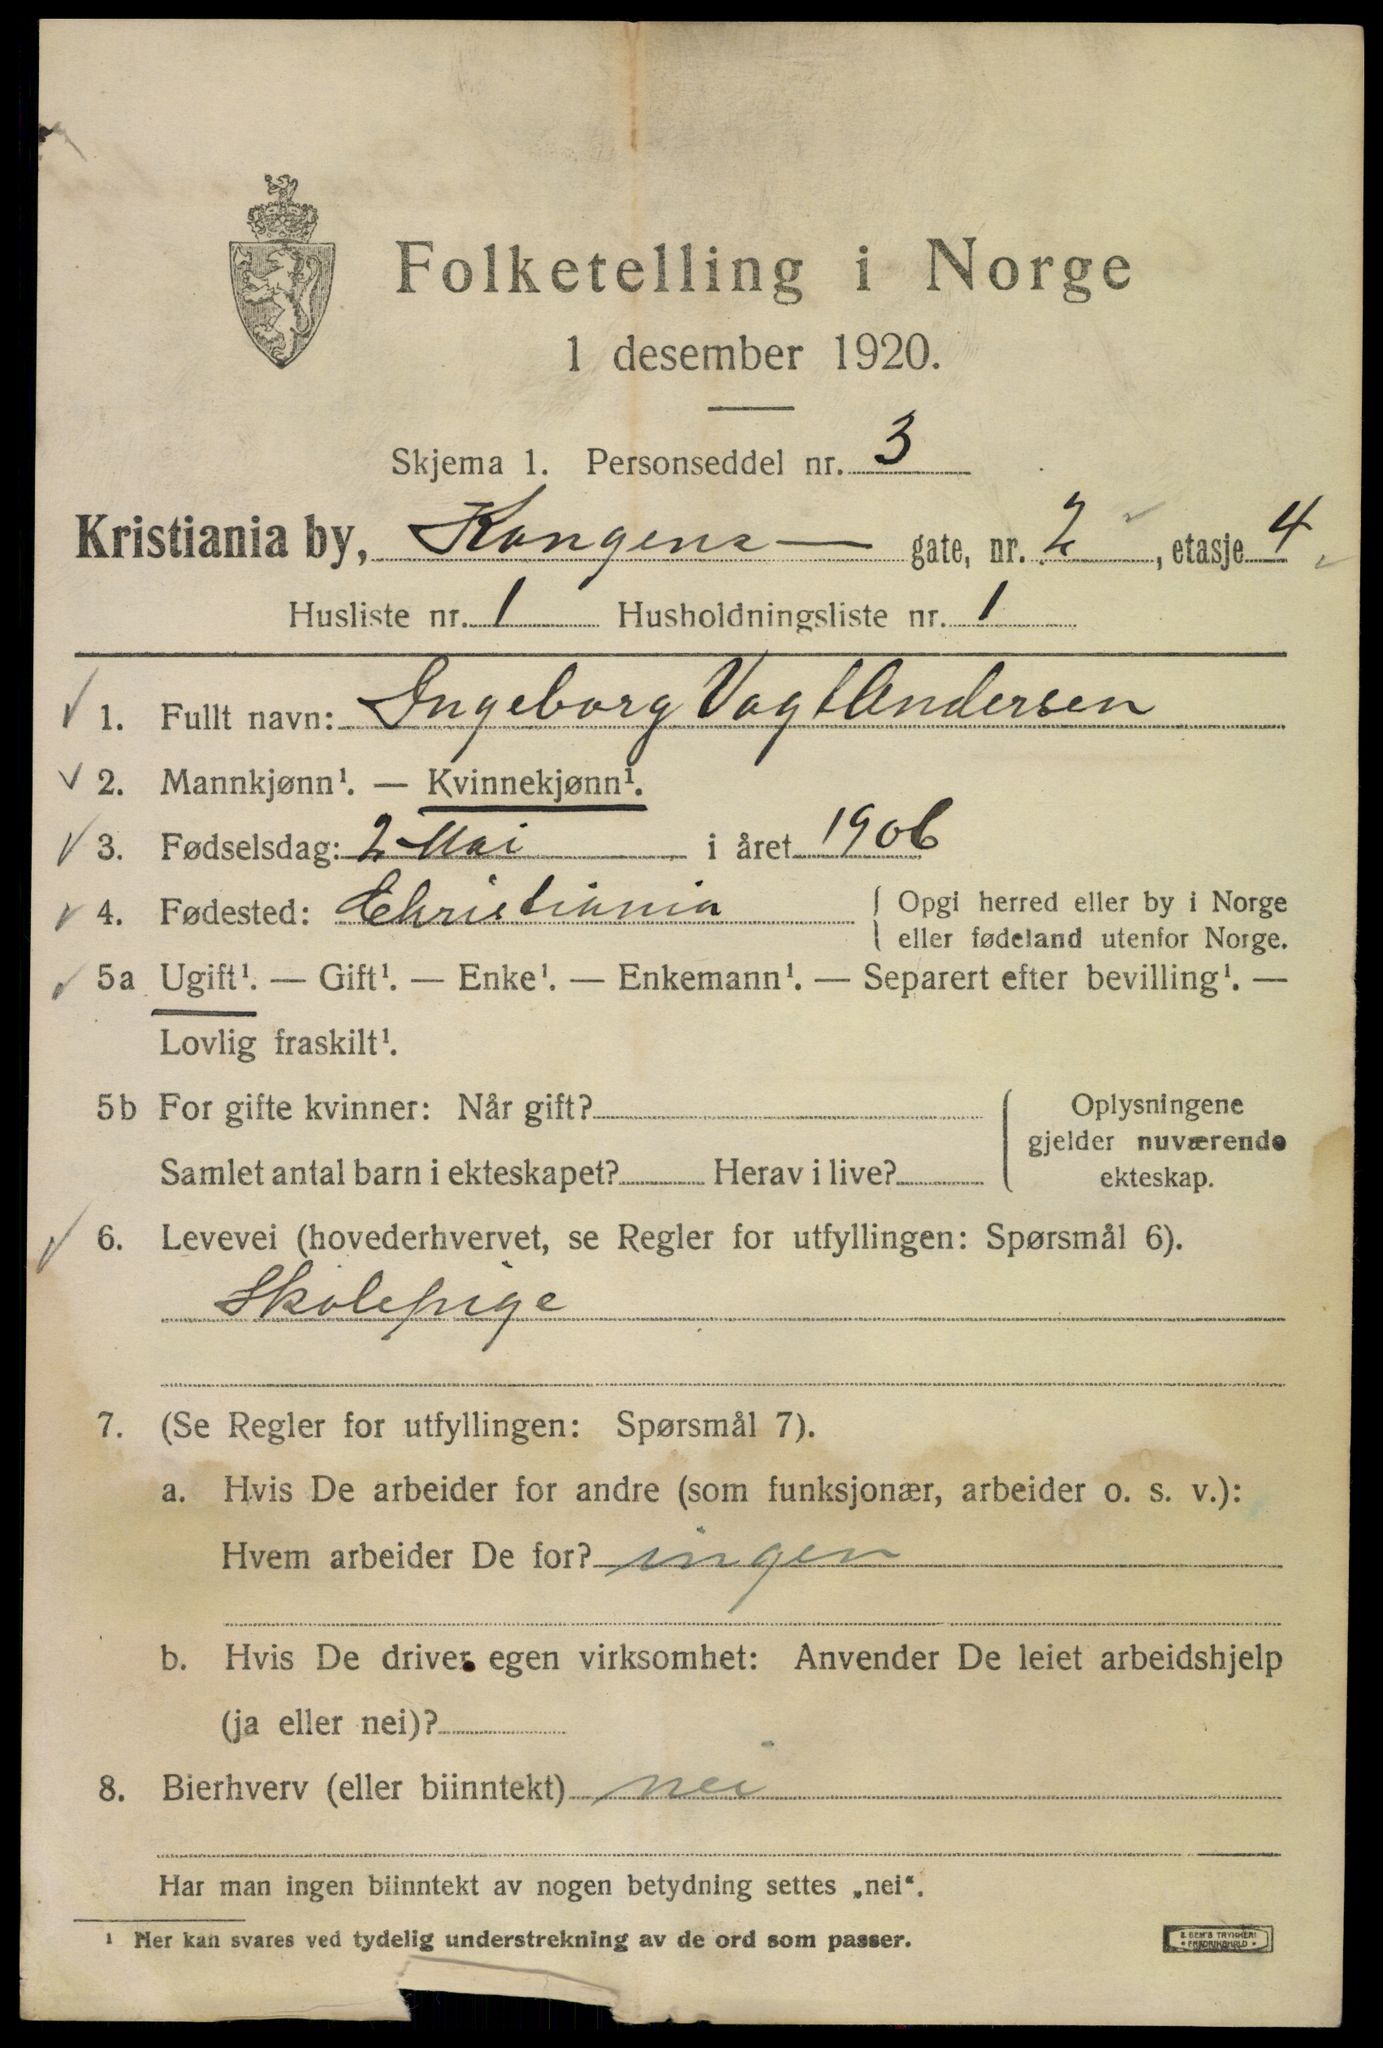 Folketelling i Norge
1 desember 1920.
Skjema 1. Personseddel nr. 3
Kristiania by, Kongens gate, nr. 2, etasje 4
Husliste nr. 1 Husholdningsliste nr. 1
1. Fullt navn: Ingeborg Vogt Andersen
2. Mannkjønn¹. — Kvinnekjønn¹.
3. Fødselsdag: 2 Mai i året 1906
4. Fødested: Christiania { Opgi herred eller by i Norge
eller fødeland utenfor Norge.
5a Ugift¹. — Gift¹. — Enke¹. — Enkemann¹. — Separert efter bevilling¹. —
Lovlig fraskilt¹.
5b For gifte kvinner: Når gift? { Oplysningene
gjelder nuværende
Samlet antal barn i ekteskapet? Herav i live? ekteskap.
6. Levevei (hovederhvervet, se Regler for utfyllingen: Spørsmål 6).
Skolepige
7. (Se Regler for utfyllingen: Spørsmål 7).
a. Hvis De arbeider for andre (som funksjonær, arbeider o. s. v.):
Hvem arbeider De for? ingen
b. Hvis De driver egen virksomhet: Anvender De leiet arbeidshjelp
(ja eller nei)?
8. Bierhverv (eller biinntekt) nei
Har man ingen biinntekt av nogen betydning settes „nei“.
¹ Her kan svares ved tydelig understrekning av de ord som passer.
E. SEM'S TRYKKERI
• FREDRIKSHALD •